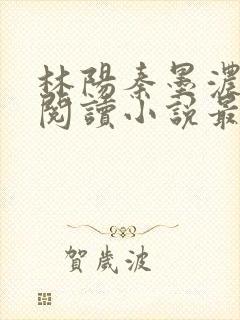 林陽秦墨濃
閱讀小說最
賀歲波